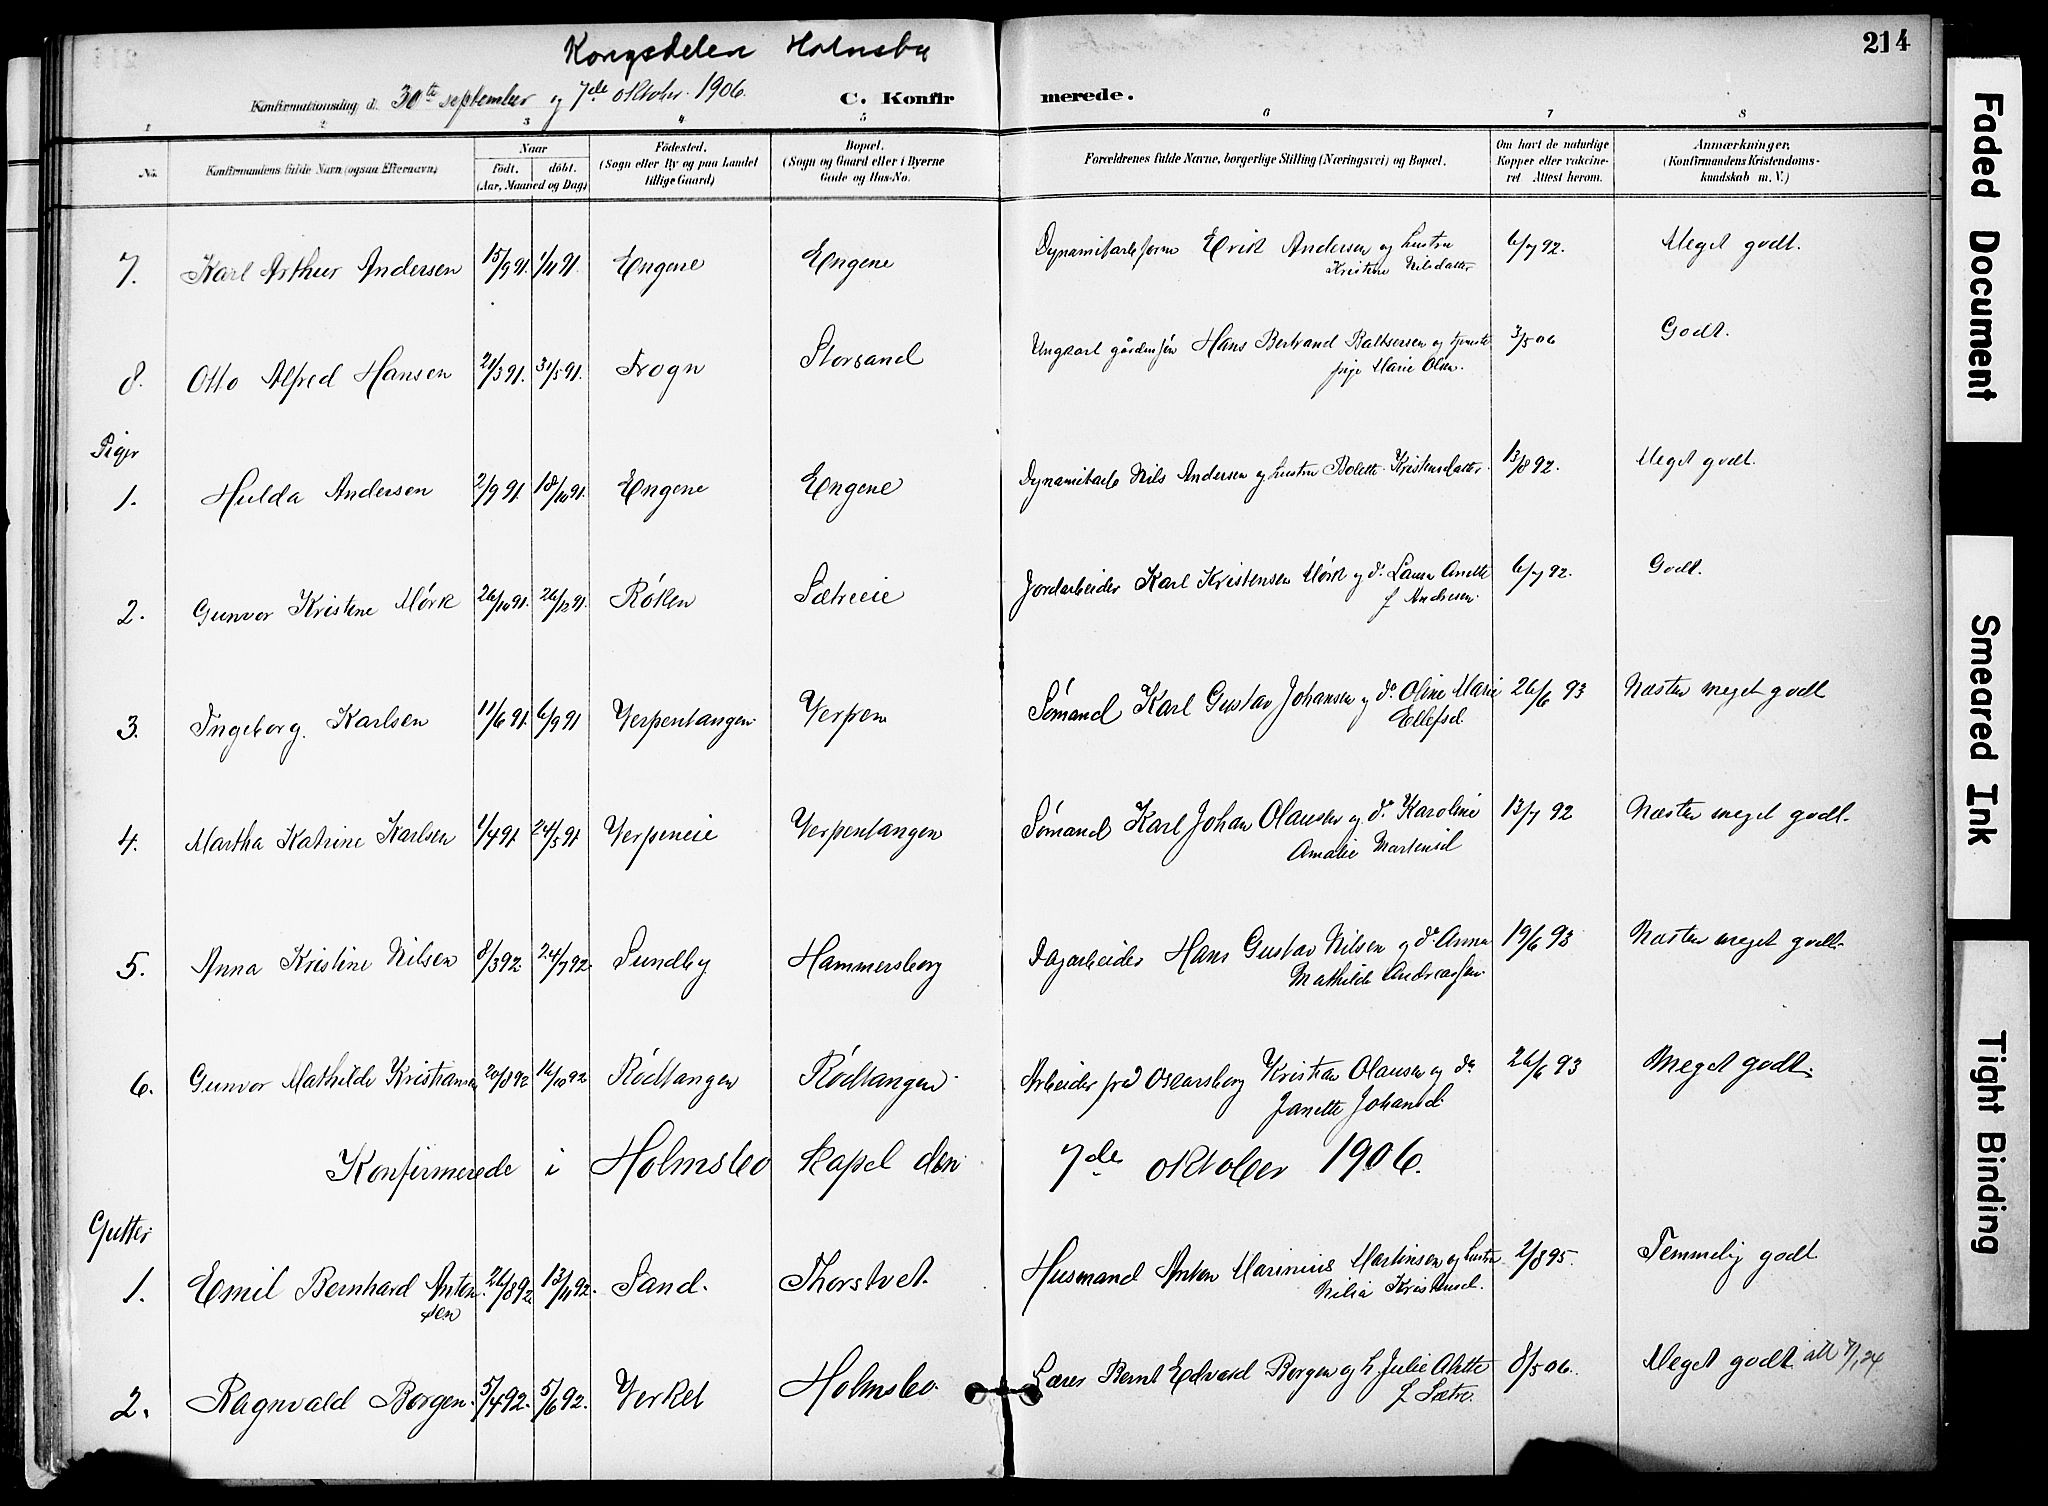 Kongsdelen Holmsbu
214
Konfirmationsdag d. 30te september og 7de oktober 1906. C. Konfirmerede.
1 2 3 4 5 6 7 8
No.
Konfirmandens fulde Navn (ogsaa Efternavn)
Naar
födt. döbt.
(Aar, Maaned og Dag)
Födested.
(Sogn eller By og paa Landet
tillige Gaard)
Bopæl.
(Sogn og Gaard eller i Byerne
Gade og Hus-No.
Forældrenes fulde Navne, borgerlige Stilling (Næringsvei) og Bopæl.
Om havt de naturlige
Kopper eller vakcine-
ret. Attest herom.
Anmærkninger.
(Konfirmandens Kristendoms-
kundskab m. V.)
7. Karl Arthur Andersen 15/9 91. 1/11 91. Engene Engene Dynamitarb. form Erik Andersen og hustru 6/7 92. Meget godt.
Kristine Nilsdatter
8. Otto Alfred Hansen 21/3 91. 31/5 91. Frogn Storsand Ungkarl gårdm søn Hans Bertrand Baltsersen og tjeneste 3/5 06 Godt.
pige Marie Olsen.
Piger
1. Hulda Andersen 2/9 91 18/10 91. Engene Engene Dynamitarb Nils Andersen og hustru Bolette Kristensdatter. 13/8 92. Meget godt.
2. Gunvor Kristine Mörk 26/10 91. 26/12 91. Röken Sætreeie Jordarbeider Karl Kristensen Mörk og do. Laura Anette 6/7 92. Godt.
f Andersen.
3. Ingeborg Karlsen 11/6 91. 6/9 91 Verpentangen Verpen Sömand Karl Gustav Johansen og do. Oline Marie 26/6 93 Næsten meget godt
Ellefsd.
4. Martha Katrine Karlsen 1/4 91. 24/5 91 Verpeneie Verpentangen Sömand Karl Johan Olausen og do. Karoline 13/7 92 Næsten meget godt.
Amalie Martinsd
5. Anna Kristine Nilsen 8/3 92. 24/7 92. Sundby Hammersborg Dagarbeider Hans Gustav Nilsen og do Anna 19/6 93 Næsten meget godt.
Mathilde Andreassen.
6. Gunvor Mathilde Kristiansen 20/8 92 16/10 92 Rödtangen Rödtangen Arbeider på Oscarsborg Kristian Olausen og do 26/6 93 Meget godt.
Janette Johansd.
Konfirmerede i Holmsbo kapel den 7de oktober 1906.
Gutter
1. Emil Bernhard Anton 26/8 92 13/11 92. Sand. Thorstvet. Husmand Anton Marinius Martinsen og hustru 2/8 95. Temmelig godt
sen Nilia Kristensd.
2. Ragnvald Borgen. 5/4 92. 5/6 92. Verket Holmsbo. Lærer Bernt Edvard Borgen og h. Julie Alette 8/5 06. Meget godt. att 7/1 24
f Sætre.
Faded Document
Smeared Ink
Tight Binding